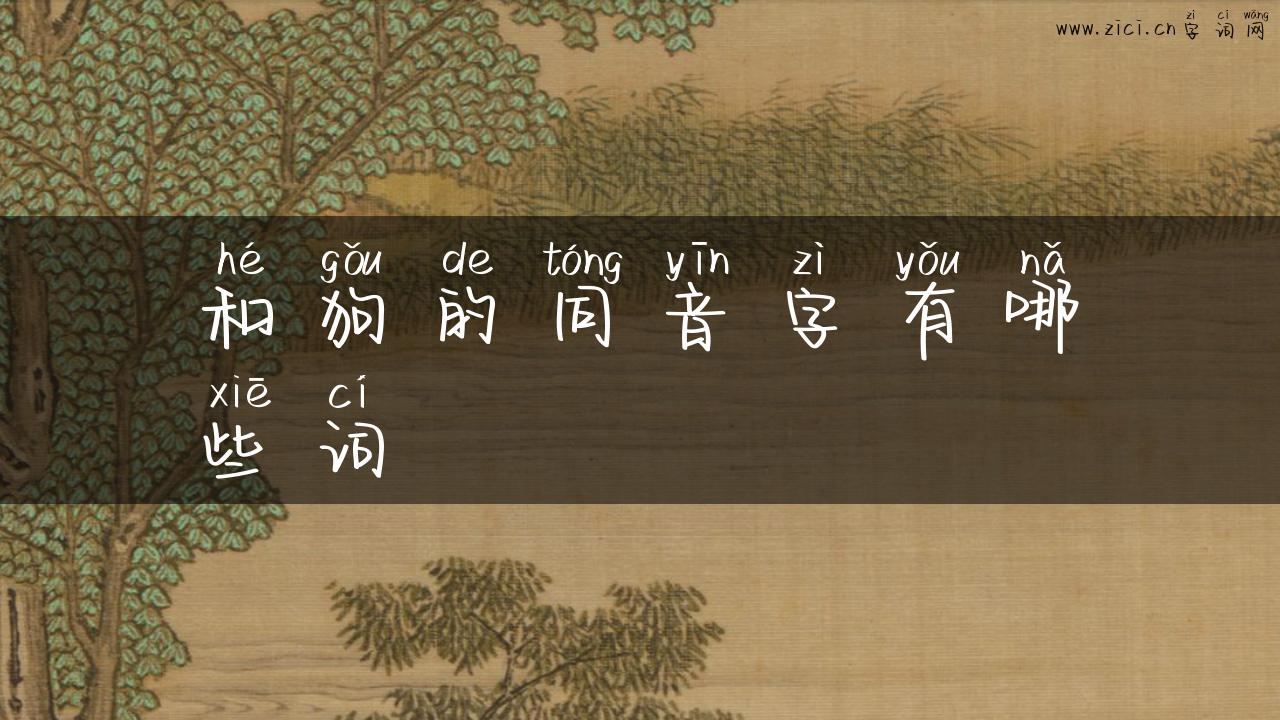 zì cí wǎng
www.zici.cn字词网
hé gǒu de tóng yīn zì yǒu nǎ
和狗的同音字有哪
xiē cí
些词